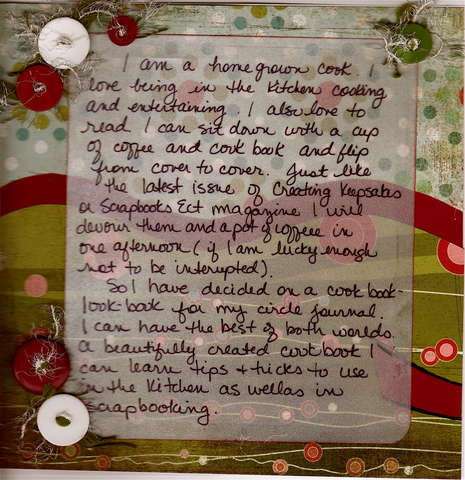 I am a homegrown cook. I
love being in the kitchen cooking
and entertaining. I also love to
read. I can sit down with a cup
of coffee and cook book and flip
from cover to cover. Just like
the latest issue of Creating Keepsakes
or Scrapbooks Ect magazine I will
devour them and a pot of coffee in
one afternoon (if I am lucky enough
not to be interupted).
So I have decided on a cook book-
look-book for my circle journal.
I can have the best of both worlds.
A beautifully created cookbook I
can learn tips + tricks to use
in the kitchen as wellas in
scrapbooking.